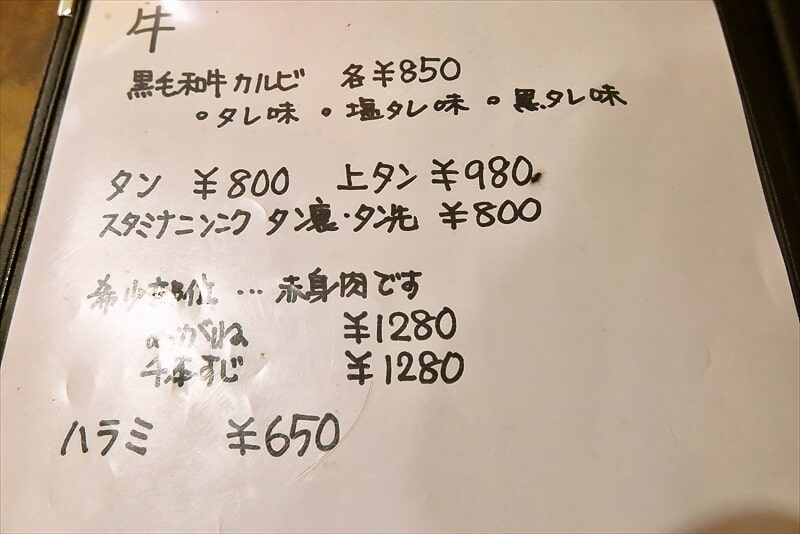 牛
黒毛和牛カルビ 各¥850
・タレ味 ・塩タレ味 ・黒タレ味
タン ¥800 上タン ¥980
スタミナニンニク タン裏・タン先 ¥800
希少部位 … 赤身肉です
¥1280
千本すじ ¥1280
ハラミ ¥650